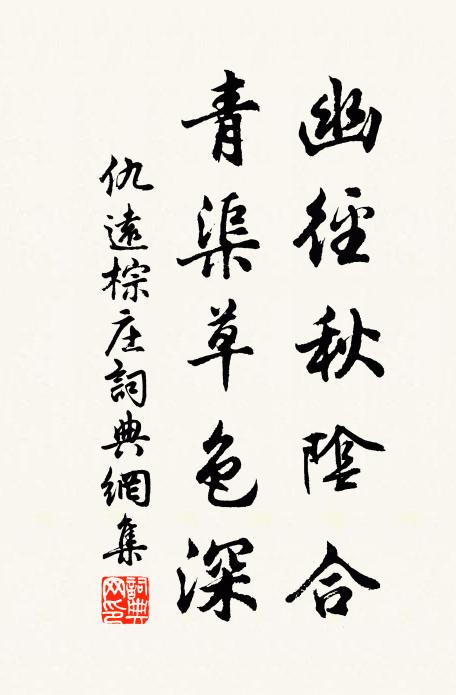 幽徑秋陰合
青渠草色深
仇遠棕庄詞典網集
詞典網印